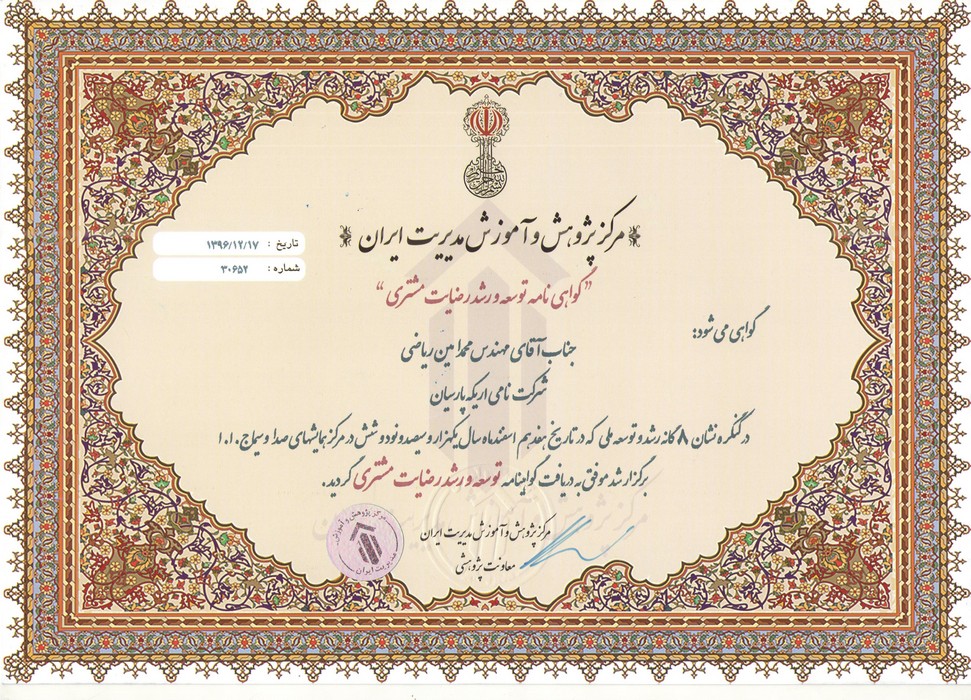 مرکز پژوهش و آموزش مدیریت ایران
تاریخ : ۱۳۹۶/۱۲/۱۷
شماره : ۳۰۶۵۲
"گواهی نامه توسعه و رشد رضایت مشتری"
گواهی می شود:
جناب آقای مهندس محمد امین ریاضی
شرکت نامی اریکه پارسیان
در کنگره نشان ۸ گانه رشد و توسعه ملی که در تاریخ هفدهم اسفند ماه سال یکهزار و سیصد و نود و شش در مرکز همایشهای صدا و سیمای ج.ا.ا
برگزار شد موفق به دریافت گواهینامه توسعه و رشد رضایت مشتری گردید.
مرکز پژوهش و آموزش مدیریت ایران
معاونت پژوهشی
مرکز پژوهش و آموزش
مدیریت ایران